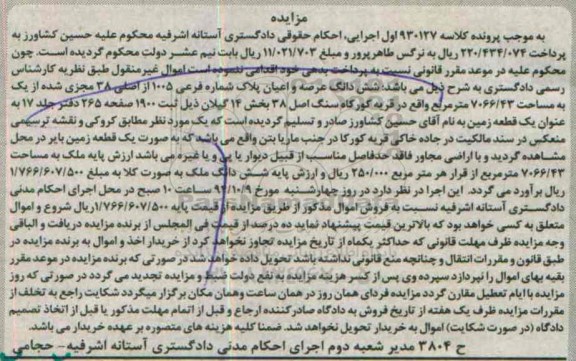 مزایده
به موجب پرونده کلاسه ۹۳۰۱۲۷ اول اجرایی، احکام حقوقی دادگستری آستانه اشرفیه محکوم علیه حسین کشاورز به
پرداخت ۲۲۰/۴۳۴/۰۷۴ ریال به نرگس طاهرپرور و مبلغ ۱۱/۰۲۱/۷۰۳ ریال بابت نیم عشر دولت محکوم گردیده است. چون
محکوم علیه در موعد مقرر قانونی نسبت به پرداخت بدهی خود اقدامی ننموده است اموال غیرمنقول طبق نظریه کارشناس
رسمی دادگستری به شرح ذیل می باشد: شش دانگ عرصه و اعیان پلاک شماره فرعی ۱۰۰۵ از اصلی ۳۸ مجزی شده از یک
به مساحت ۷۰۶۶/۴۳ مترمربع واقع در قریه کورگاه سنگ اصل ۳۸ بخش ۱۴ گیلان ذیل ثبت ۱۹۰۰ صفحه ۲۶۵ دفتر جلد ۱۷ به
عنوان یک قطعه زمین به نام آقای حسین کشاورز صادر و تسلیم گردیده است که یک مورد نظر مطابق کروکی و نقشه ترسیمی
منعکس در سند مالکیت در جاده خاکی قریه کورکا در جنب ماریا بتن واقع می باشد که به صورت یک قطعه زمین بایر در محل
مشاهده گردید و با اراضی مجاور فاقد حدفاصل مناسب از قبیل دیوار یا پی و یا غیره می باشد ارزش پایه ملک به مساحت
۷۰۶۶/۴۳ مترمربع از قرار هر متر مربع ۲۵۰/۰۰۰ ریال و ارزش پایه شش دانگ ملک به صورت کلا به مبلغ ۱/۷۶۶/۶۰۷/۵۰۰
ریال برآورد می گردد. این اجرا در نظر دارد در روز چهارشنبه مورخ ۹۴/۱۰/۹ ساعت ۱۰ صبح در محل اجرای احکام مدنی
دادگستری آستانه اشرفیه نسبت به فروش اموال مذکور از طریق مزایده از قیمت پایه ۱/۷۶۶/۶۰۷/۵۰۰ ریال شروع و اموال
متعلق به کسی خواهد بود که بالاترین قیمت پیشنهاد نماید ده درصد از قیمت فی المجلس از برنده مزایده دریافت و الباقی
وجه مزایده ظرف مهلت قانونی که حداکثر یکماه از تاریخ مزایده تجاوز نخواهد کرد از خریدار اخذ و اموال به برنده مزایده در
طبق قانون و مقررات انتقال و چنانچه منع قانونی نداشته باشد تحویل داده خواهد شد در صورتی که برنده مزایده در موعد مقرر
بقیه بهای اموال را نپردازد سپرده وی پس از کسر هزینه مزایده به نفع دولت ضبط و مزایده تجدید می گردد در صورتی که روز
مزایده با ایام تعطیل مقارن گردد مزایده فردای همان روز در همان ساعت و همان مکان برگزار میگردد شکایت راجع به تخلف از
مقررات مزایده ظرف یک هفته از تاریخ فروش به دادگاه صادرکننده ارجاع و قبل از اتمام مهلت مذکور یا قبل از اتخاذ تصمیم
دادگاه (در صورت شکایت) اموال به خریدار تحویل نخواهد شد. ضمنا کلیه هزینه های متصوره بر عهده خریدار می باشد.
ح ۳۸۰۴ مدیر شعبه دوم اجرای احکام مدنی دادگستری آستانه اشرفیه - حجامی